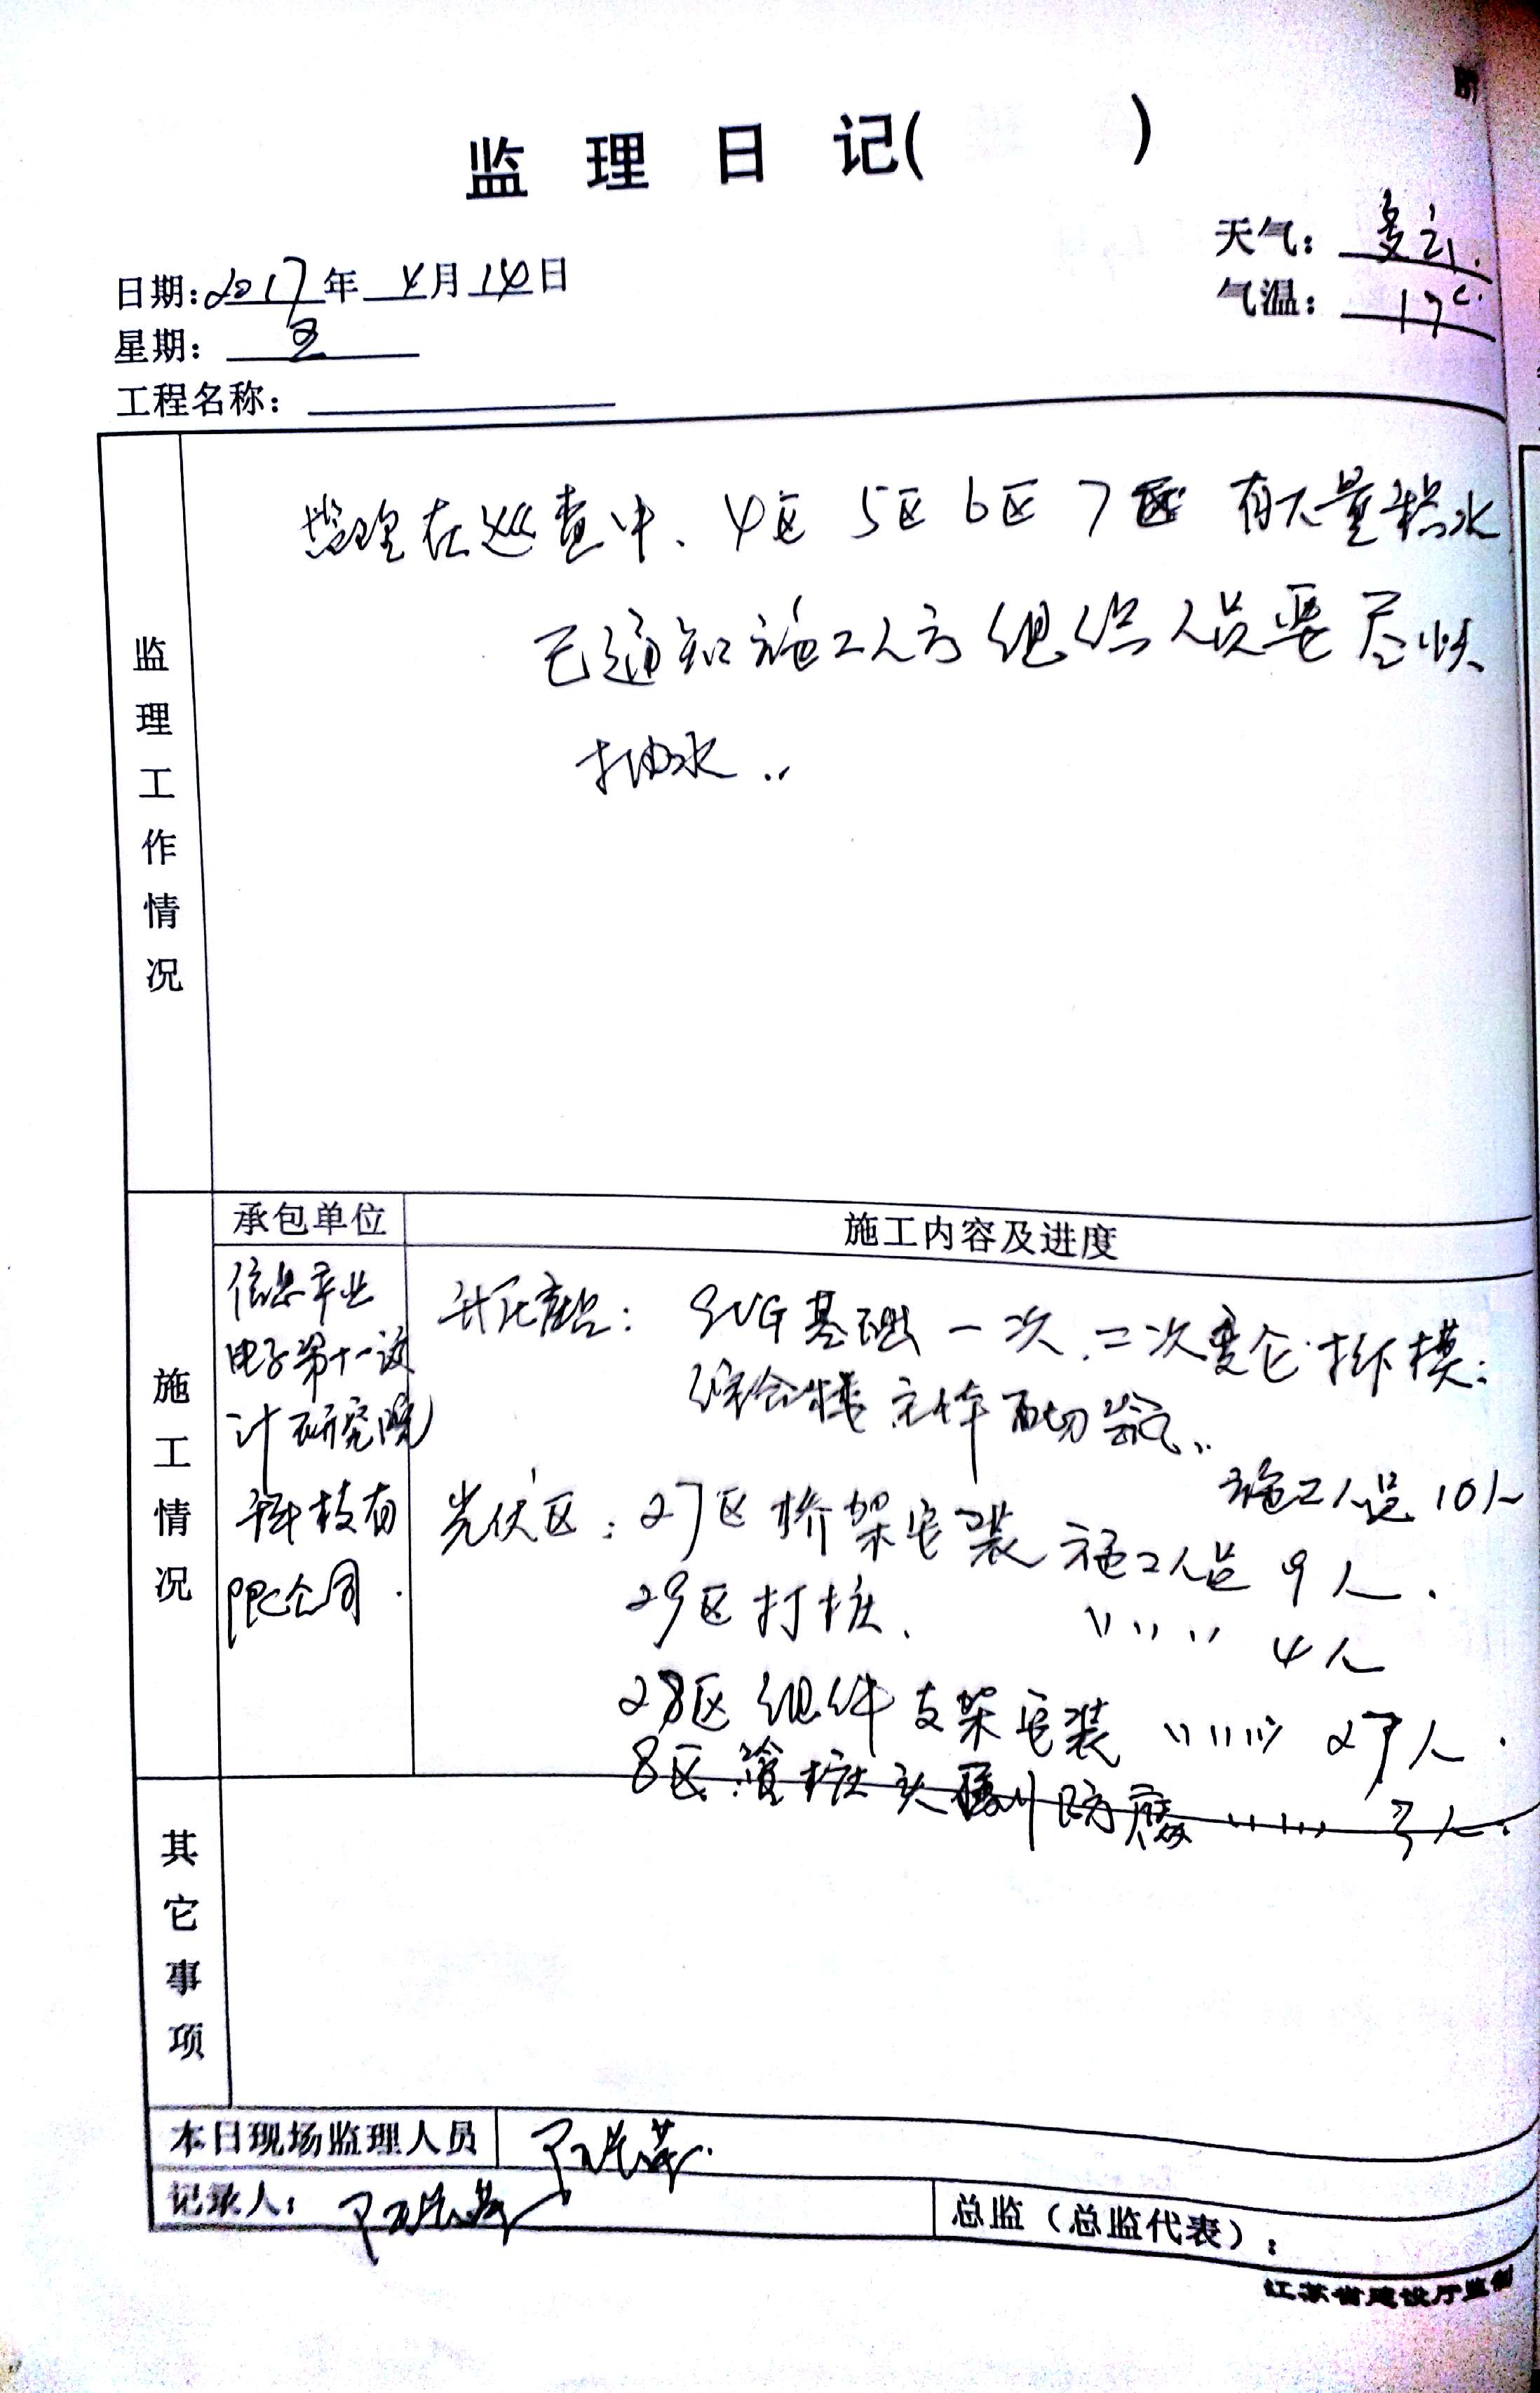 监理日记( )
天气：多云.
日期:2017年4月14日
气温：17℃.
星期：五
工程名称：
监理工作情况
监理在巡查中、4区 5区 6区 7区 有大量积水
已通知施工人方组织人员要尽快
抽水..
承包单位
施工内容及进度
施工情况
信息产业
电子第十一设
计研究院
科技有
限公司.
升压站：SVG基础一次.二次变仓.拆模;
综合楼主体
施工人员10人
光伏区：27区桥架安装 施工人员 9人.
29区打桩. 〃〃 4人
28区组件支架安装 〃〃〃 27人.
8区管桩头 防腐 〃〃〃 3人.
其它事项
本日现场监理人员
记录人：
总监（总监代表）：
江苏省建设厅监制